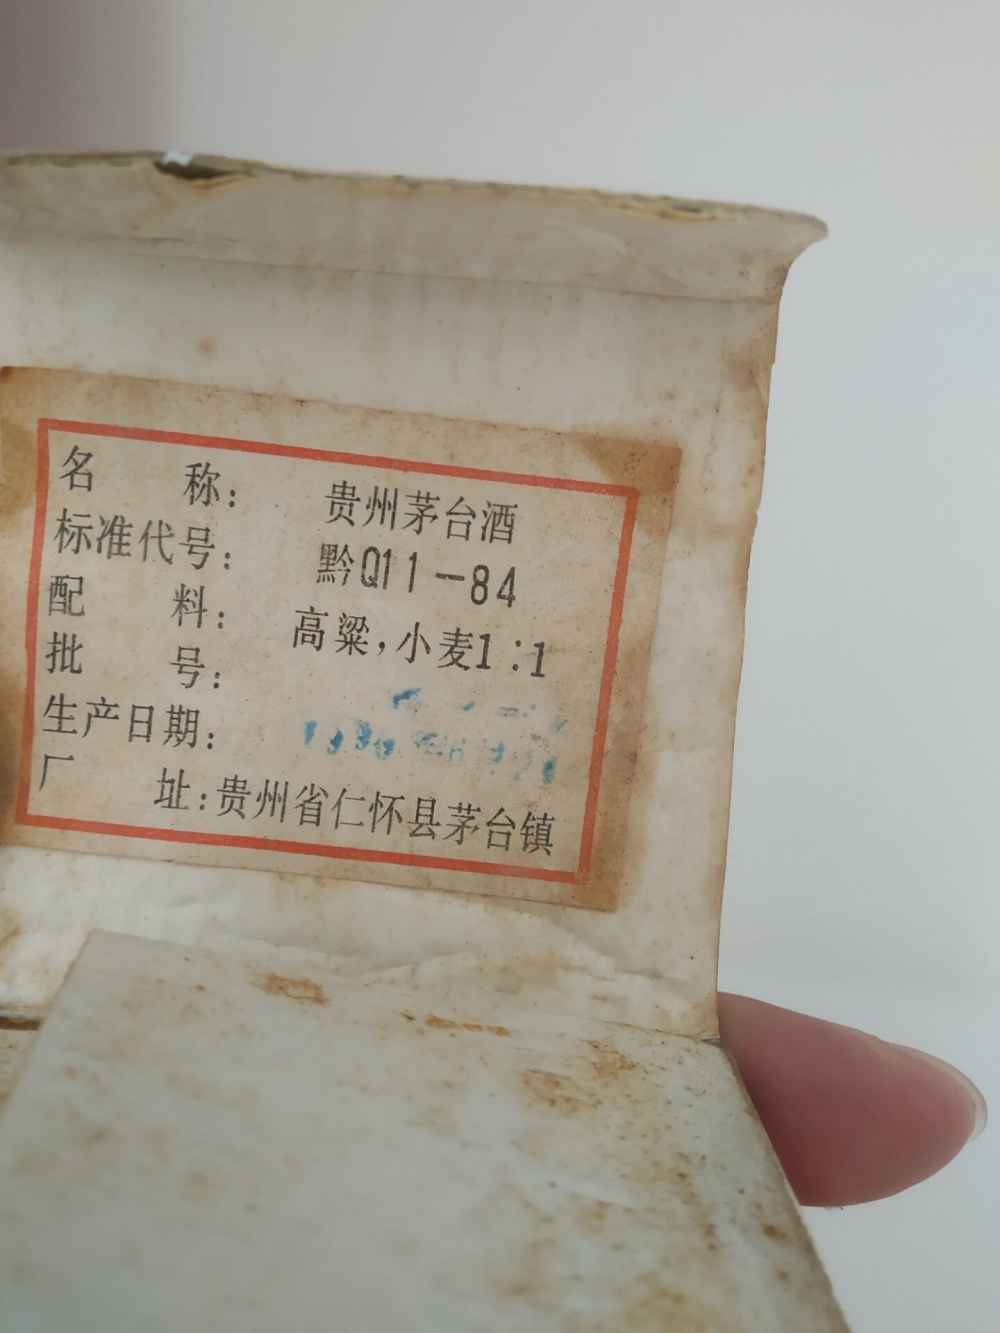 名 称: 贵州茅台酒
标准代号: 黔Q11-84
配 料: 高粱,小麦1:1
批 号:
生产日期:
厂 址:贵州省仁怀县茅台镇